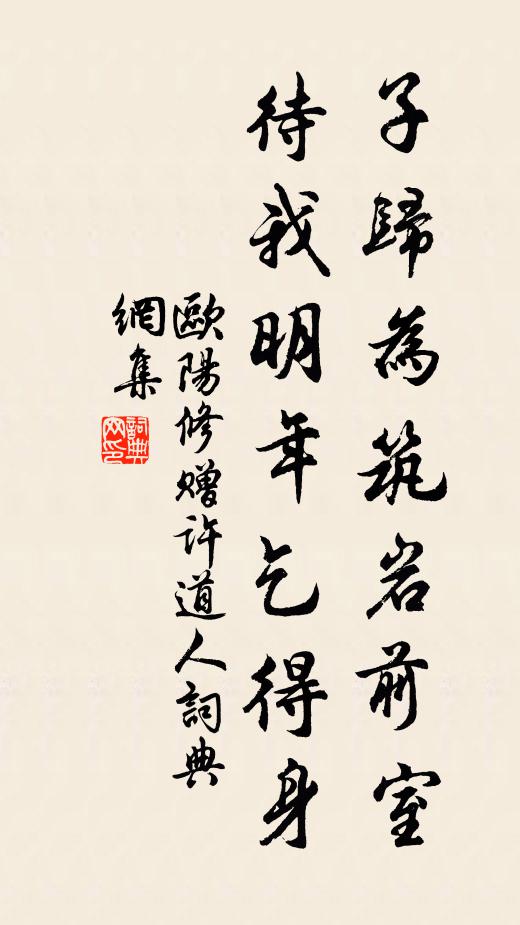 子歸為筑岩前室
待我明年乞得身
歐陽修贈許道人詞典
網集
詞典
网印